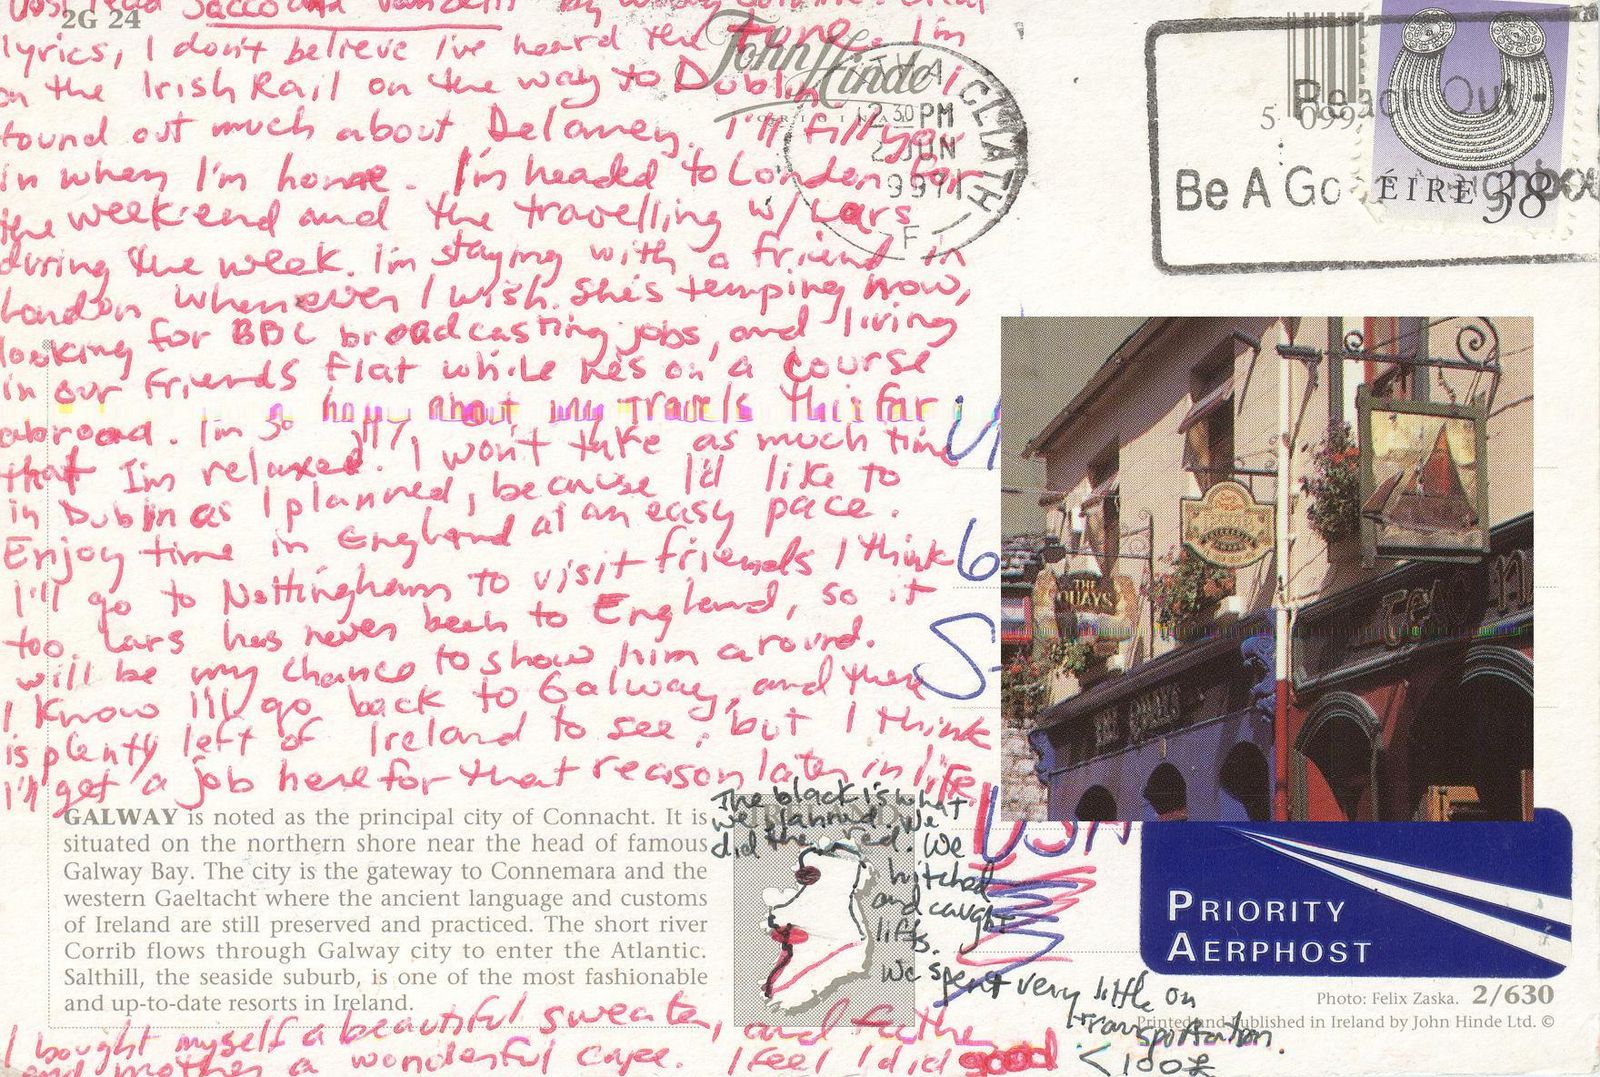 Just read Sacco and Vanzetti by Woody
2G 24
lyrics, I don't believe I've heard the tune. I'm
on the Irish Rail on the way to Dublin. I
found out much about Delaney. I'll fill you
in when I'm home. I'm headed to London for
the weekend and the travelling w/ Lars
during the week. I'm staying with a friend in
London whenever I wish. She's temping now,
looking for BBC broadcasting jobs, and living
in our friends flat while he's on a course
abroad. I'm so happy about my travels this far
that I'm relaxed. I won't take as much time
in Dublin as I planned, because I'd like to
Enjoy time in England at an easy pace.
I'll go to Nottingham to visit friends I think
too. Lars has never been to England, so it
will be my chance to show him around.
I know I'll go back to Galway, and there
is plenty left of Ireland to see, but I think
I'll get a job here for that reason later in life.
John Hinde
ORIGINAL
ATHA CLIATH
2 30 PM
2 JUN
1994
F
5 099
Reach Out -
Be A Good Neighbour
ÉIRE 38
U
6
S
USA
THE QUAYS
THE QUAYS
GALWAY is noted as the principal city of Connacht. It is
situated on the northern shore near the head of famous
Galway Bay. The city is the gateway to Connemara and the
western Gaeltacht where the ancient language and customs
of Ireland are still preserved and practiced. The short river
Corrib flows through Galway city to enter the Atlantic.
Salthill, the seaside suburb, is one of the most fashionable
and up-to-date resorts in Ireland.
The black is what
we planned. We
did the red. We
hitched
and caught
lifts.
We spent very little on
transportation.
< 100£
PRIORITY
AERPHOST
Photo: Felix Zaska. 2/630
Printed and Published in Ireland by John Hinde Ltd. ©
I bought myself a beautiful sweater, and father
and mother a wonderful cape. I feel I did good